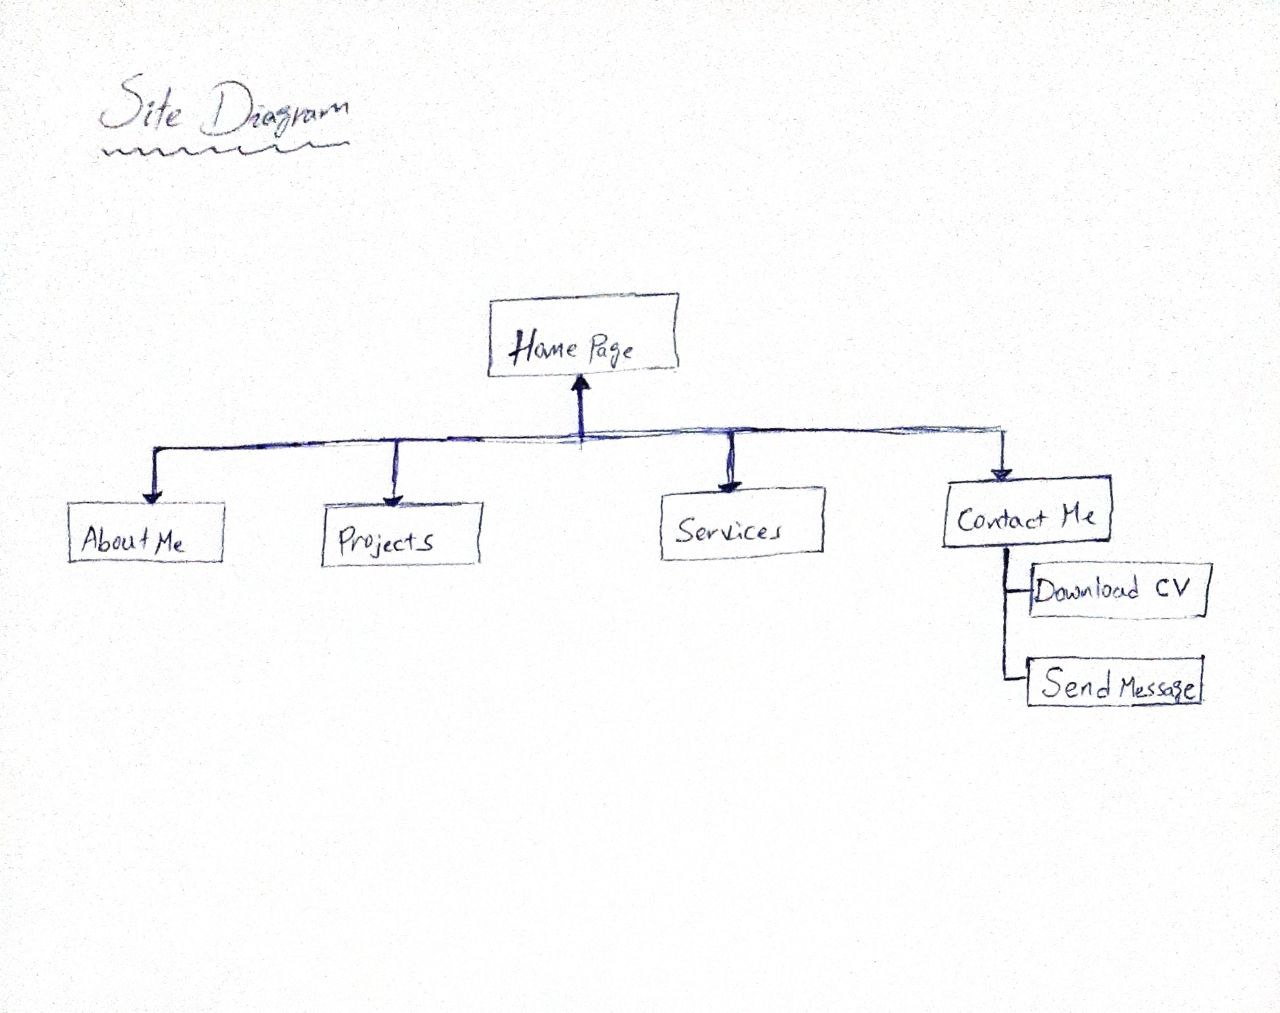 Site Diagram
Home Page
About Me
Projects
Services
Contact Me
Download CV
Send Message